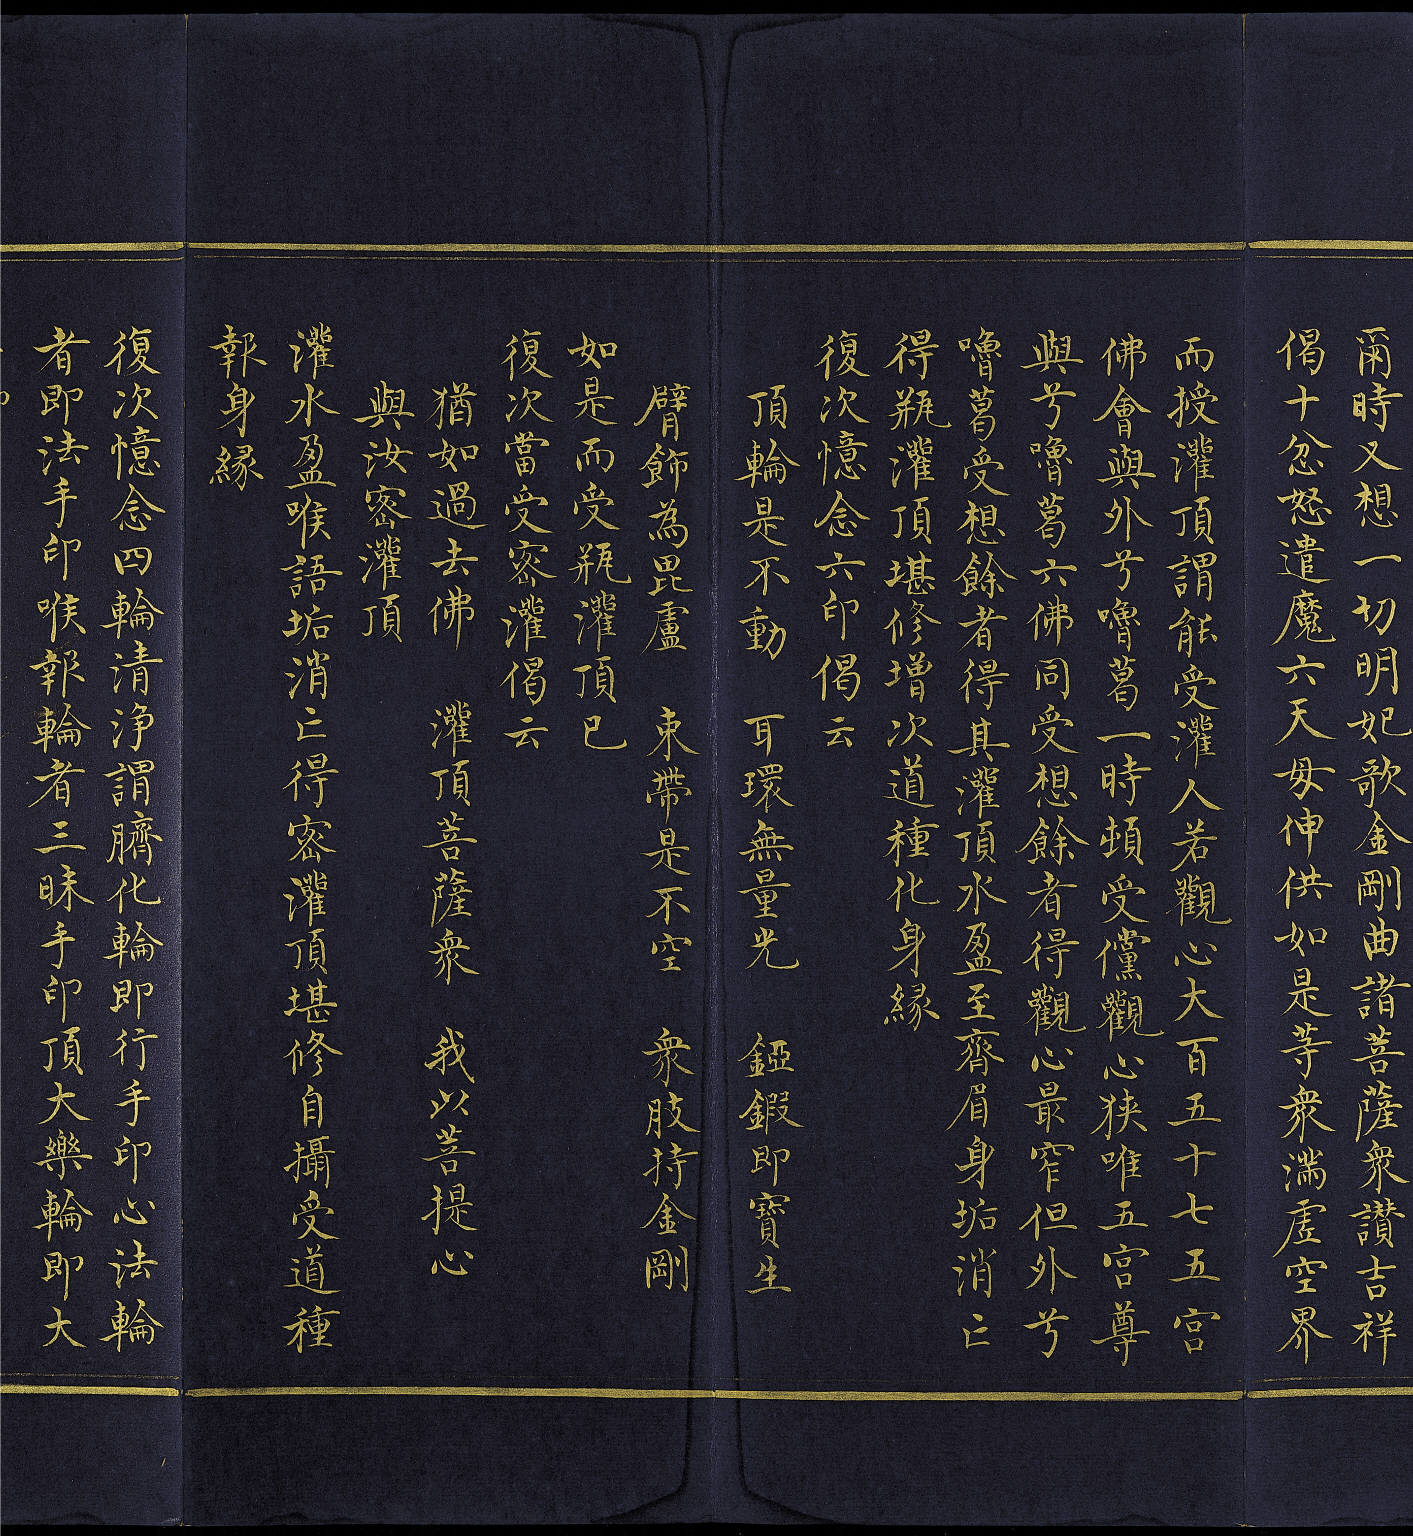 爾時又想一切明妃歌金剛曲諸菩薩衆讚吉祥
偈十忿怒遣魔六天母伸供如是等衆滿虛空界
而授灌頂謂能受灌人若觀心大百五十七五宫
佛會與外兮嚕葛一時頓受儻觀心狹唯五宫尊
與兮嚕葛六佛同受想餘者得觀心最窄但外兮
嚕葛受想餘者得其灌頂水盈至齊眉身垢消亡
得瓶灌頂堪修增次道種化身緣
復次憶念六印偈云
頂輪是不動　耳環無量光　錏鍜即寶生
臂飾為毘盧　束帶是不空　衆肢持金剛
如是而受瓶灌頂已
復次當受密灌偈云
猶如過去佛　灌頂菩薩衆　我以菩提心
與汝密灌頂
灌水盈喉語垢消亡得密灌頂堪修自攝受道種
報身緣
復次憶念四輪清淨謂臍化輪即行手印心法輪
者即法手印喉報輪者三昧手印頂大樂輪即大